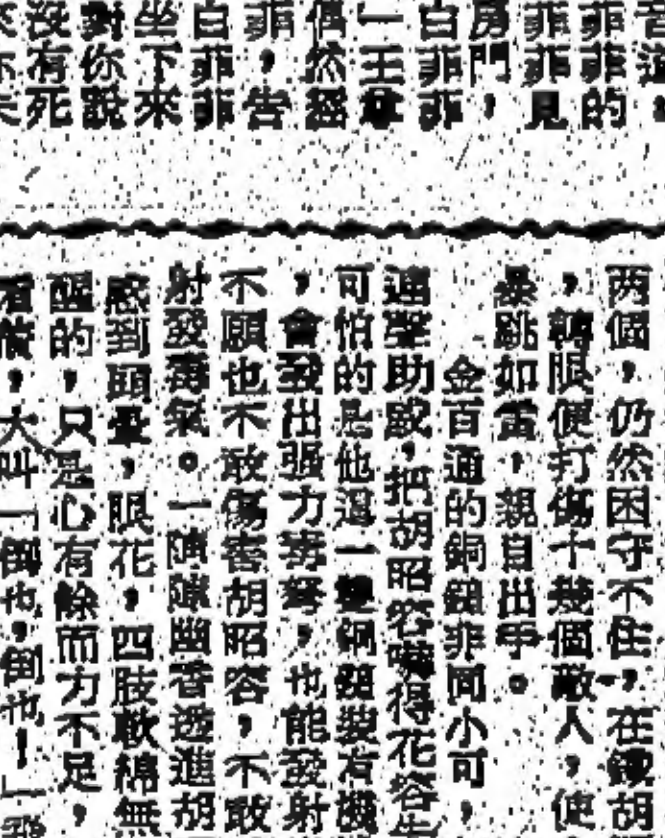 音
菲菲的
菲菲見
房門，
白菲菲
一王
偶然經
菲，告
白菲菲
坐下來
對你說
沒有死
两個，仍然困守不住，在鐵胡
，轉眼便打傷十幾個敵人，使
暴跳如雷，親自出手。
金百通的銅鎚非同小可，
連聲助威，把胡昭容嚇得花容失
可怕的是他這一雙銅鎚裝有機
，會發出強力毒弩，也能發射
不願也不敢傷害胡昭容，不敢
射發毒氣。一陣陣幽香透進胡
感到頭暈，眼花，四肢軟綿無
醒的，只是心有餘而力不足，
，大叫一倒也，倒也！」